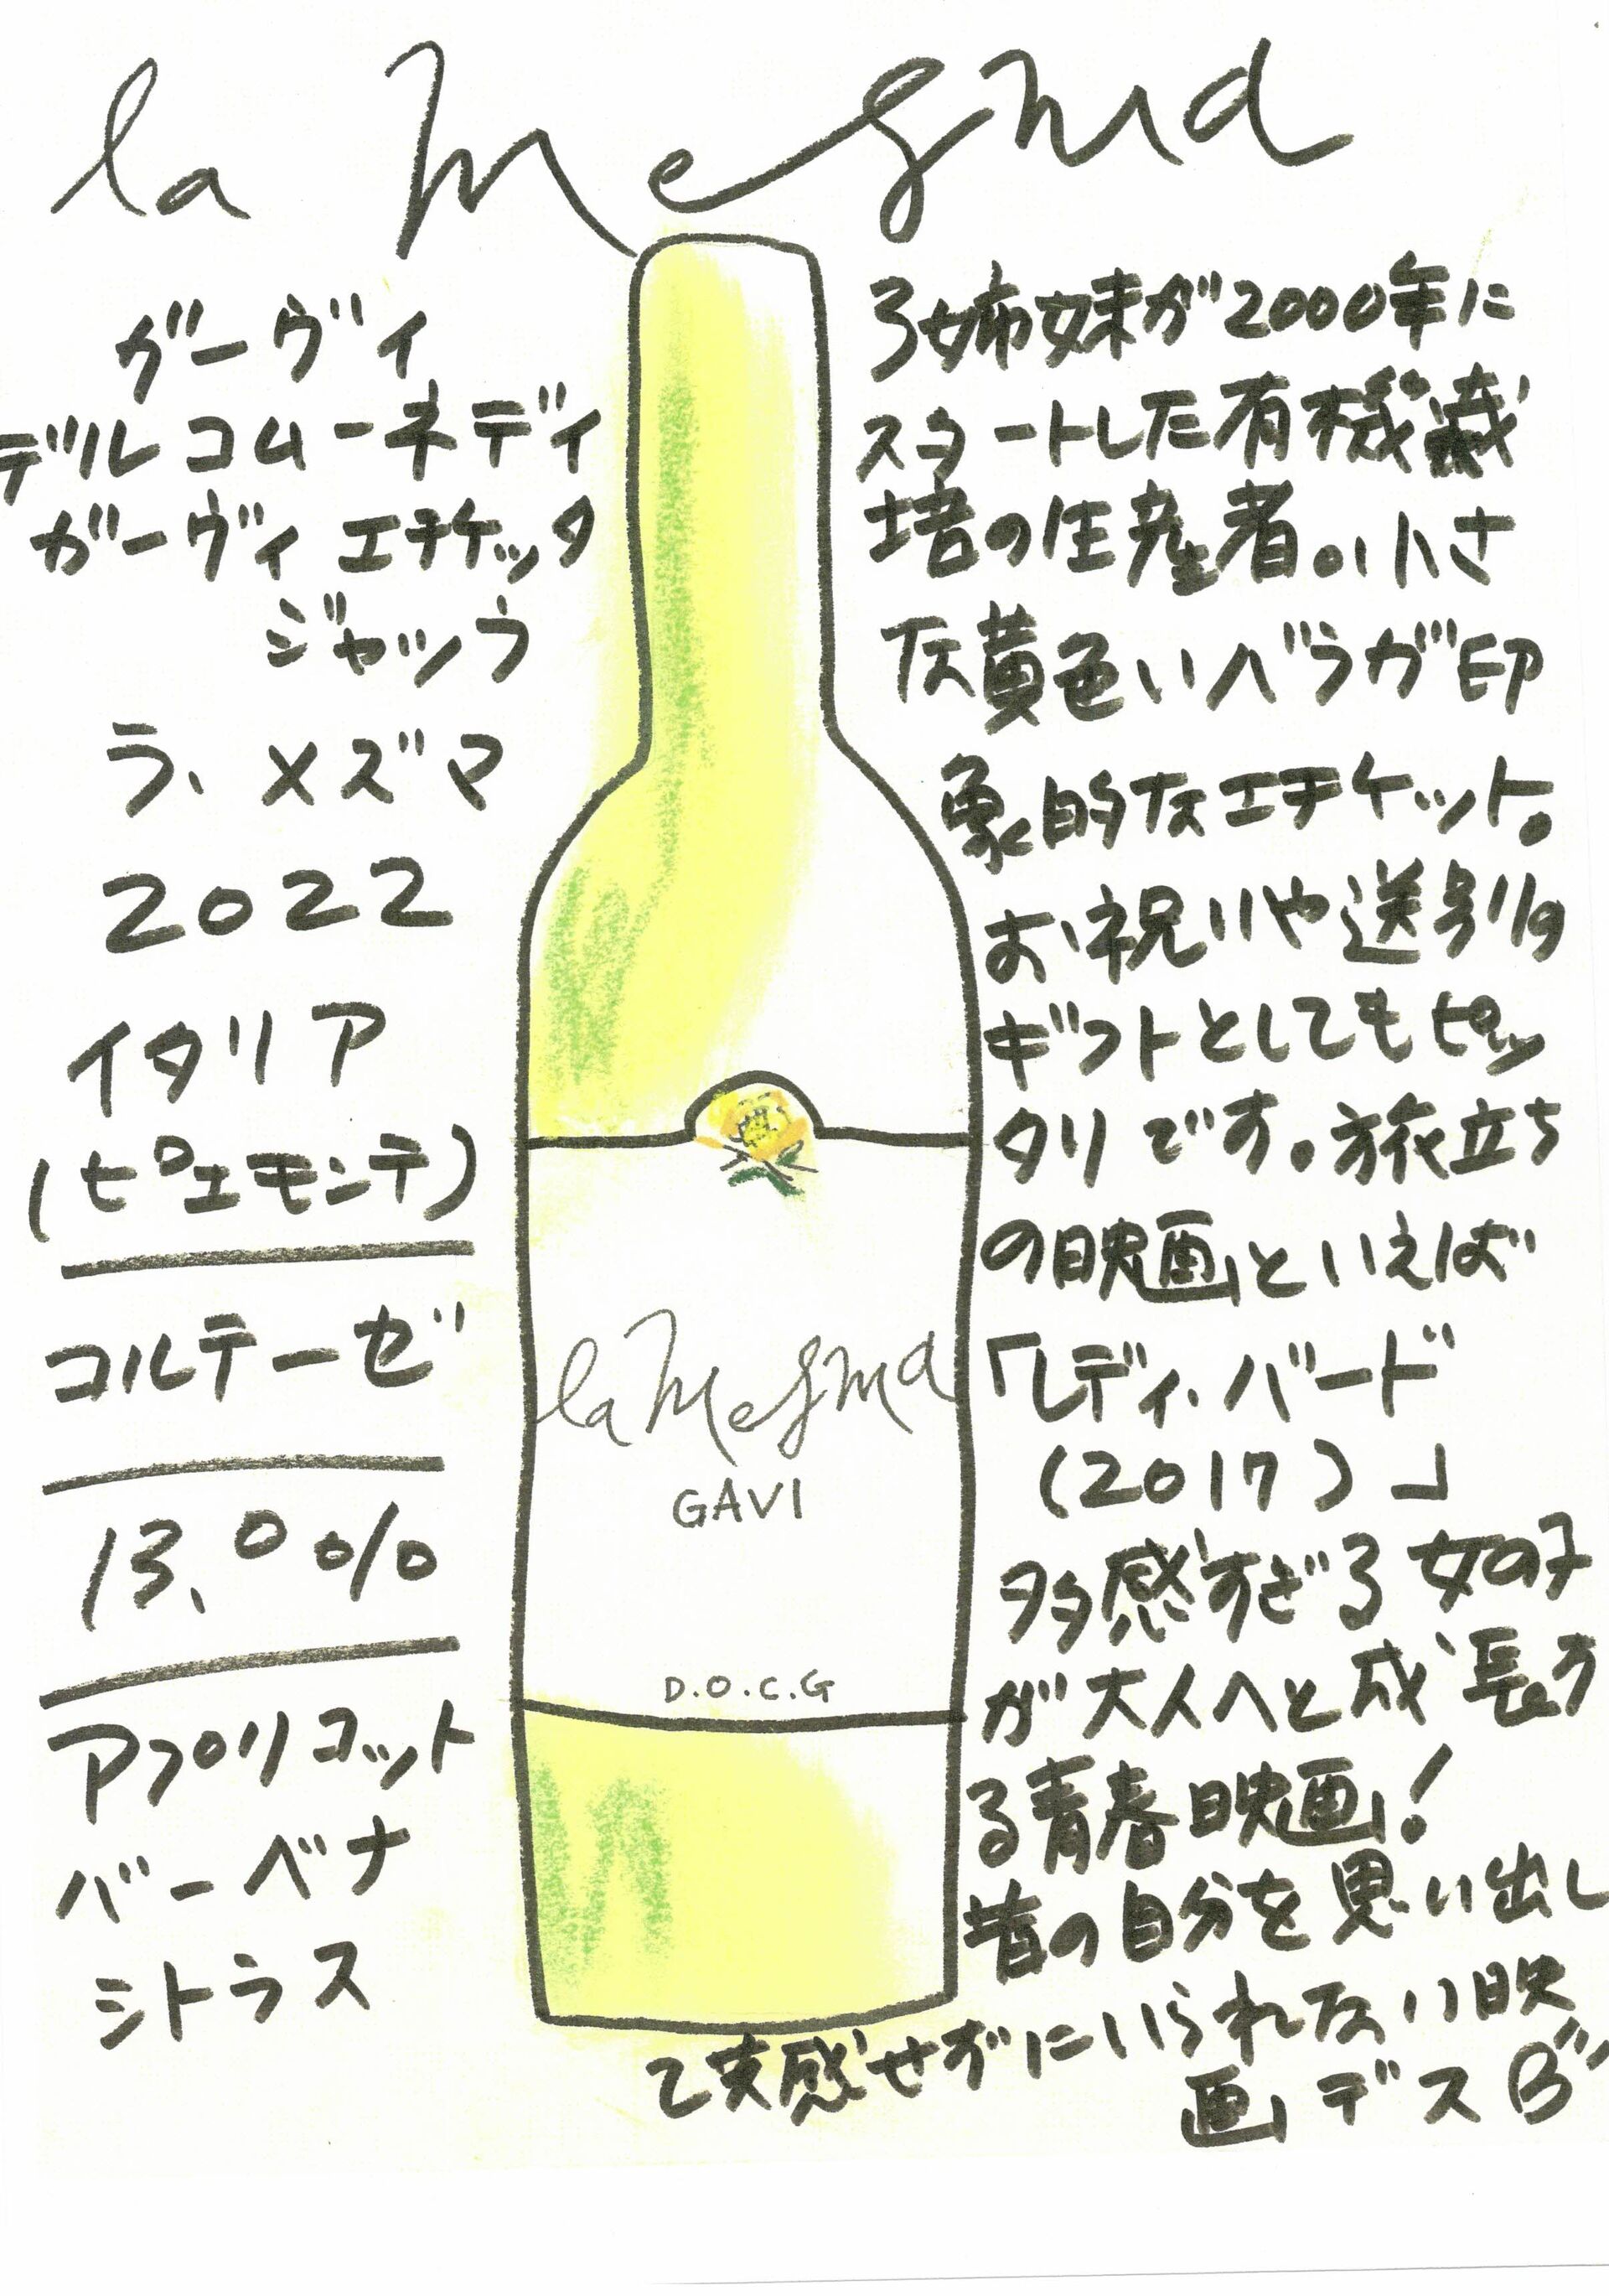 la Mesma
ガーヴィ
デル コムーネ ディ
ガーヴィ エチケッタ
ジャッラ
ラ・メズマ
2022
イタリア
(ピエモンテ)
コルテーゼ
13.0%
アプリコット
バーベナ
シトラス
la Mesma
GAVI
D.O.C.G
3姉妹が2000年に
スタートした有機栽
培の生産者。小さ
な黄色いバラが印
象的なエチケット。
お祝いや送別の
ギフトとしてもピッ
タリです。旅立ち
の映画といえば
「レディ・バード
(2017)」
多感すぎる女の子
が大人へと成長す
る青春映画!
昔の自分を思い出し
て実感せずにいられない映
画デス